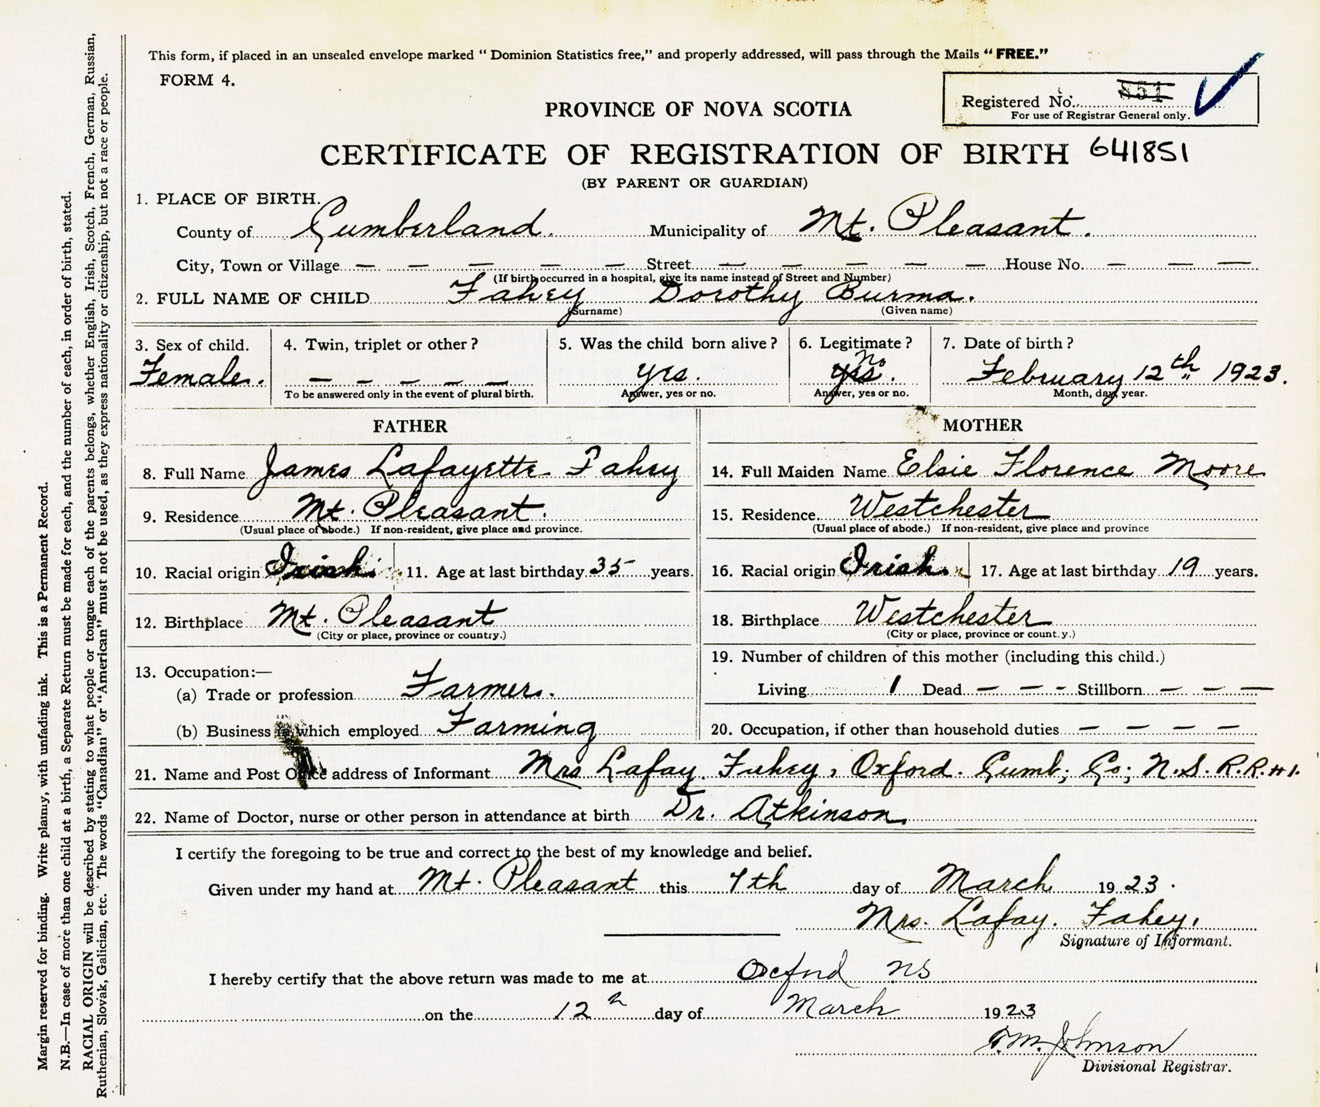 This form, if placed in an unsealed envelope marked “ Dominion Statistics free,” and properly addressed, will pass through the Mails “ FREE.”
FORM 4.
Registered No. 851
For use of Registrar General only.
PROVINCE OF NOVA SCOTIA
CERTIFICATE OF REGISTRATION OF BIRTH 641851
(BY PARENT OR GUARDIAN)
1. PLACE OF BIRTH.
County of Cumberland. Municipality of Mt. Pleasant.
City, Town or Village — — — — — — Street — — — — — House No. — — —
(If birth occurred in a hospital, give its name instead of Street and Number)
2. FULL NAME OF CHILD Fahey Dorothy Burma.
(Surname) (Given name)
3. Sex of child. 4. Twin, triplet or other? 5. Was the child born alive? 6. Legitimate? 7. Date of birth?
no
Female. — — — — — yes. yes. February 12th 1923.
To be answered only in the event of plural birth. Answer, yes or no. Answer, yes or no. Month, day, year.
FATHER MOTHER
8. Full Name James Lafayette Fahey 14. Full Maiden Name Elsie Florence Moore
9. Residence Mt. Pleasant. 15. Residence Westchester
(Usual place of abode.) If non-resident, give place and province. (Usual place of abode.) If non-resident, give place and province
10. Racial origin Irish. 11. Age at last birthday 35 years. 16. Racial origin Irish. 17. Age at last birthday 19 years.
12. Birthplace Mt. Pleasant 18. Birthplace Westchester
(City or place, province or country.) (City or place, province or count.y.)
13. Occupation:— 19. Number of children of this mother (including this child.)
(a) Trade or profession Farmer. Living 1 Dead — — - Stillborn — — —
(b) Business which employed Farming 20. Occupation, if other than household duties — — — —
21. Name and Post Office address of Informant Mrs Lafay. Fahey, Oxford. Cumb; Co; N.S. R.R.#1.
22. Name of Doctor, nurse or other person in attendance at birth Dr. Atkinson
I certify the foregoing to be true and correct to the best of my knowledge and belief.
Given under my hand at Mt. Pleasant this 7th day of March 1923.
Mrs. Lafay. Fahey.
Signature of Informant.
I hereby certify that the above return was made to me at Oxford NS
on the 12th day of March 1923
Johnson
Divisional Registrar.
Margin reserved for binding. Write plainly, with unfading ink. This is a Permanent Record.
N.B.—In case of more than one child at a birth, a Separate Return must be made for each, and the number of each, in order of birth, stated.
RACIAL ORIGIN will be described by stating to what people or tongue each of the parents belongs, whether English, Irish, Scotch, French, German, Russian,
Ruthenian, Slovak, Galician, etc. The words “Canadian” or “American” must not be used, as they express nationality or citizenship, but not a race or people.